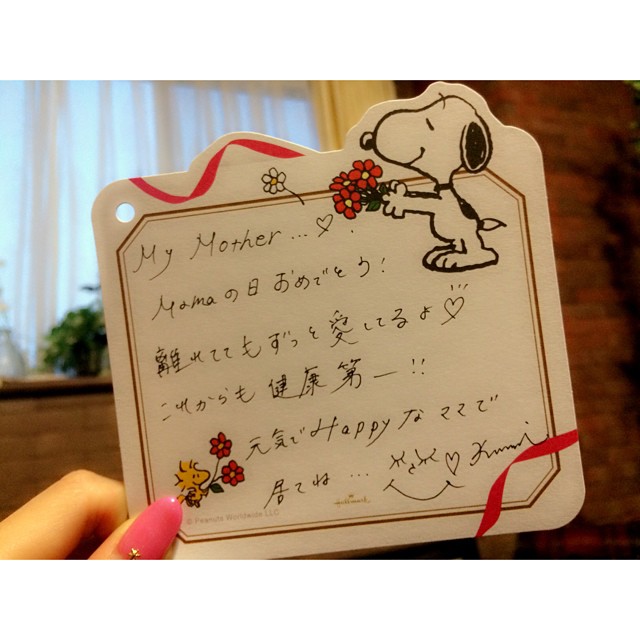 My Mother...♡.
Mamaの日おめでとう!
離れててもずっと愛してるよ♡
これからも健康第一!!
元気でHappyなママで
居てね...
Hallmark
© Peanuts Worldwide LLC